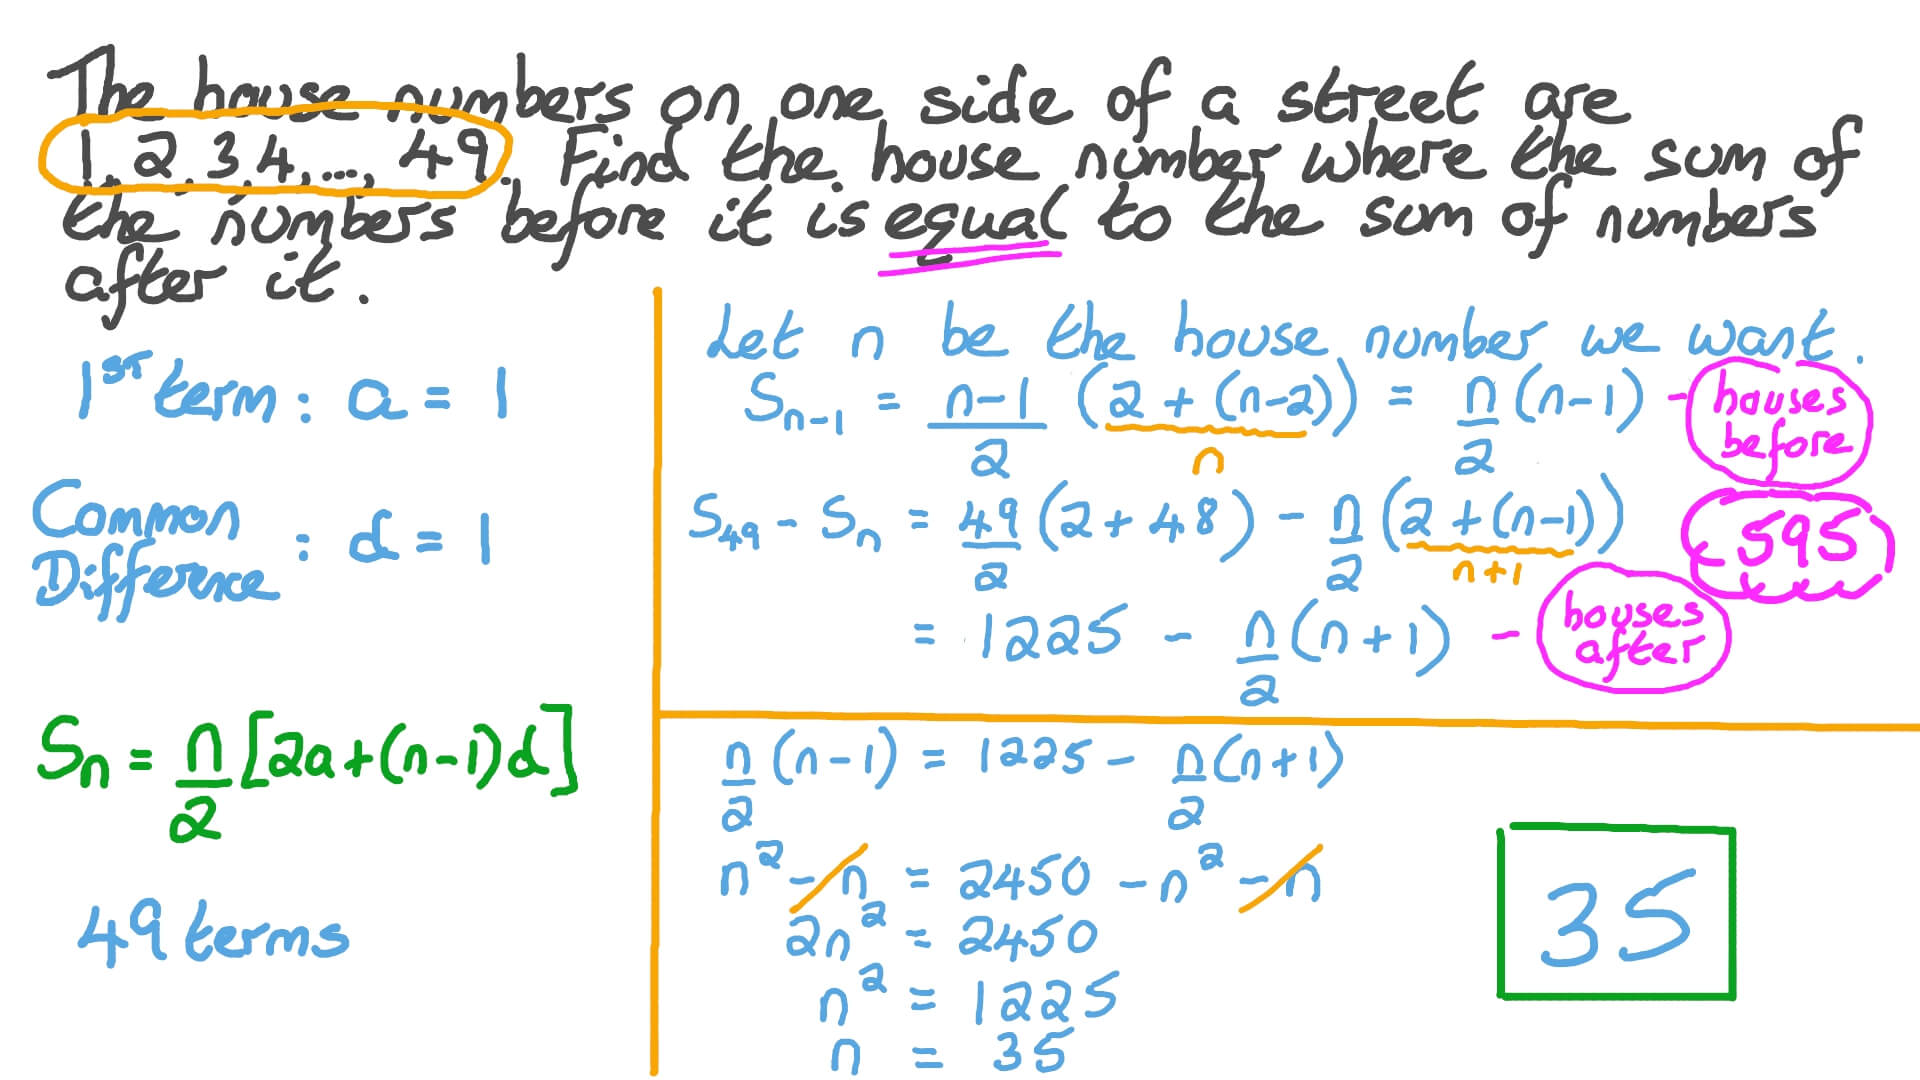 The house numbers on one side of a street are
1, 2, 3, 4, ..., 49. Find the house number where the sum of
the numbers before it is equal to the sum of numbers
after it.
1ST term : a = 1
Common
Difference : d = 1
Sn = n/2 [2a+(n-1)d]
49 terms
Let n be the house number we want.
Sn-1 = n-1/2 (2 + (n-2)) = n/2 (n-1) - houses before
n
S49 - Sn = 49/2 (2 + 48) - n/2 (2 + (n-1))
n+1
595
= 1225 - n/2 (n+1) - houses after
n/2 (n-1) = 1225 - n/2 (n+1)
n² - n = 2450 - n² - n
2n² = 2450
n² = 1225
n = 35
35